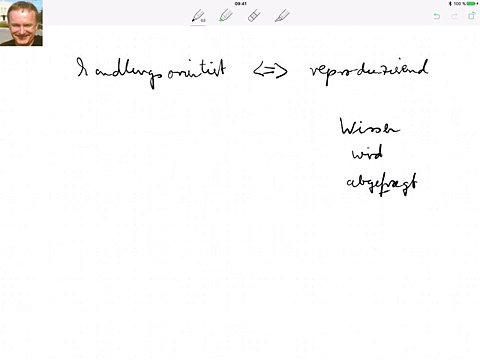 09:41
100 %
handlungsorientiert <=> reproduzierend
Wissen
wird
abgefragt